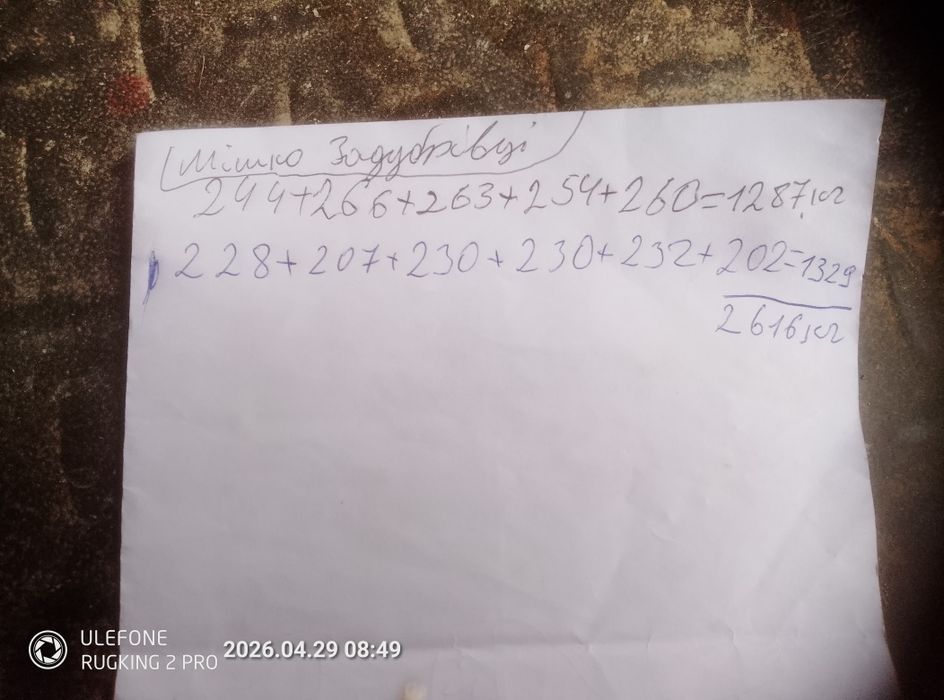 Мішко Задубрівці
244+266+263+254+260=1287кг
228+207+230+230+232+202=1329
2616кг
ULEFONE
RUGKING 2 PRO 2026.04.29 08:49